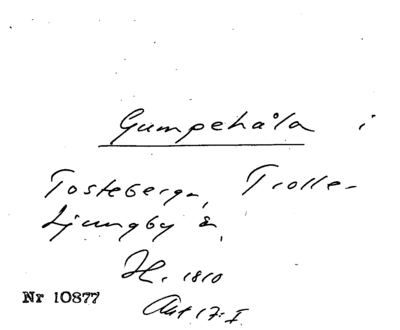 Gumpehåla i
Tosteberga, Trolle-
Ljungby s.
H. 1810
Nr 10877
Akt 17:I